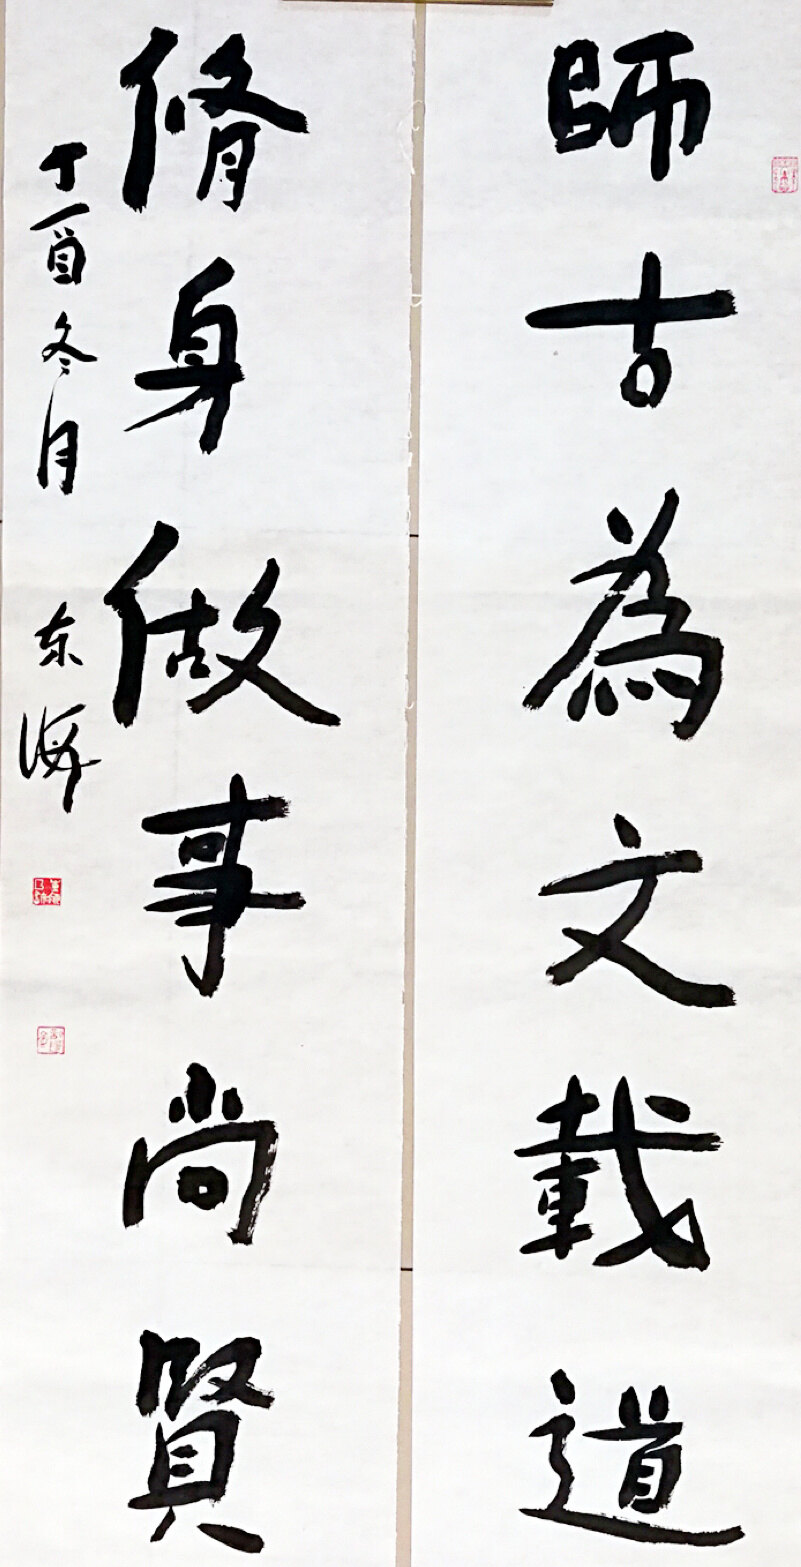 師古為文載道
脩身做事尚賢
丁酉冬月 东海